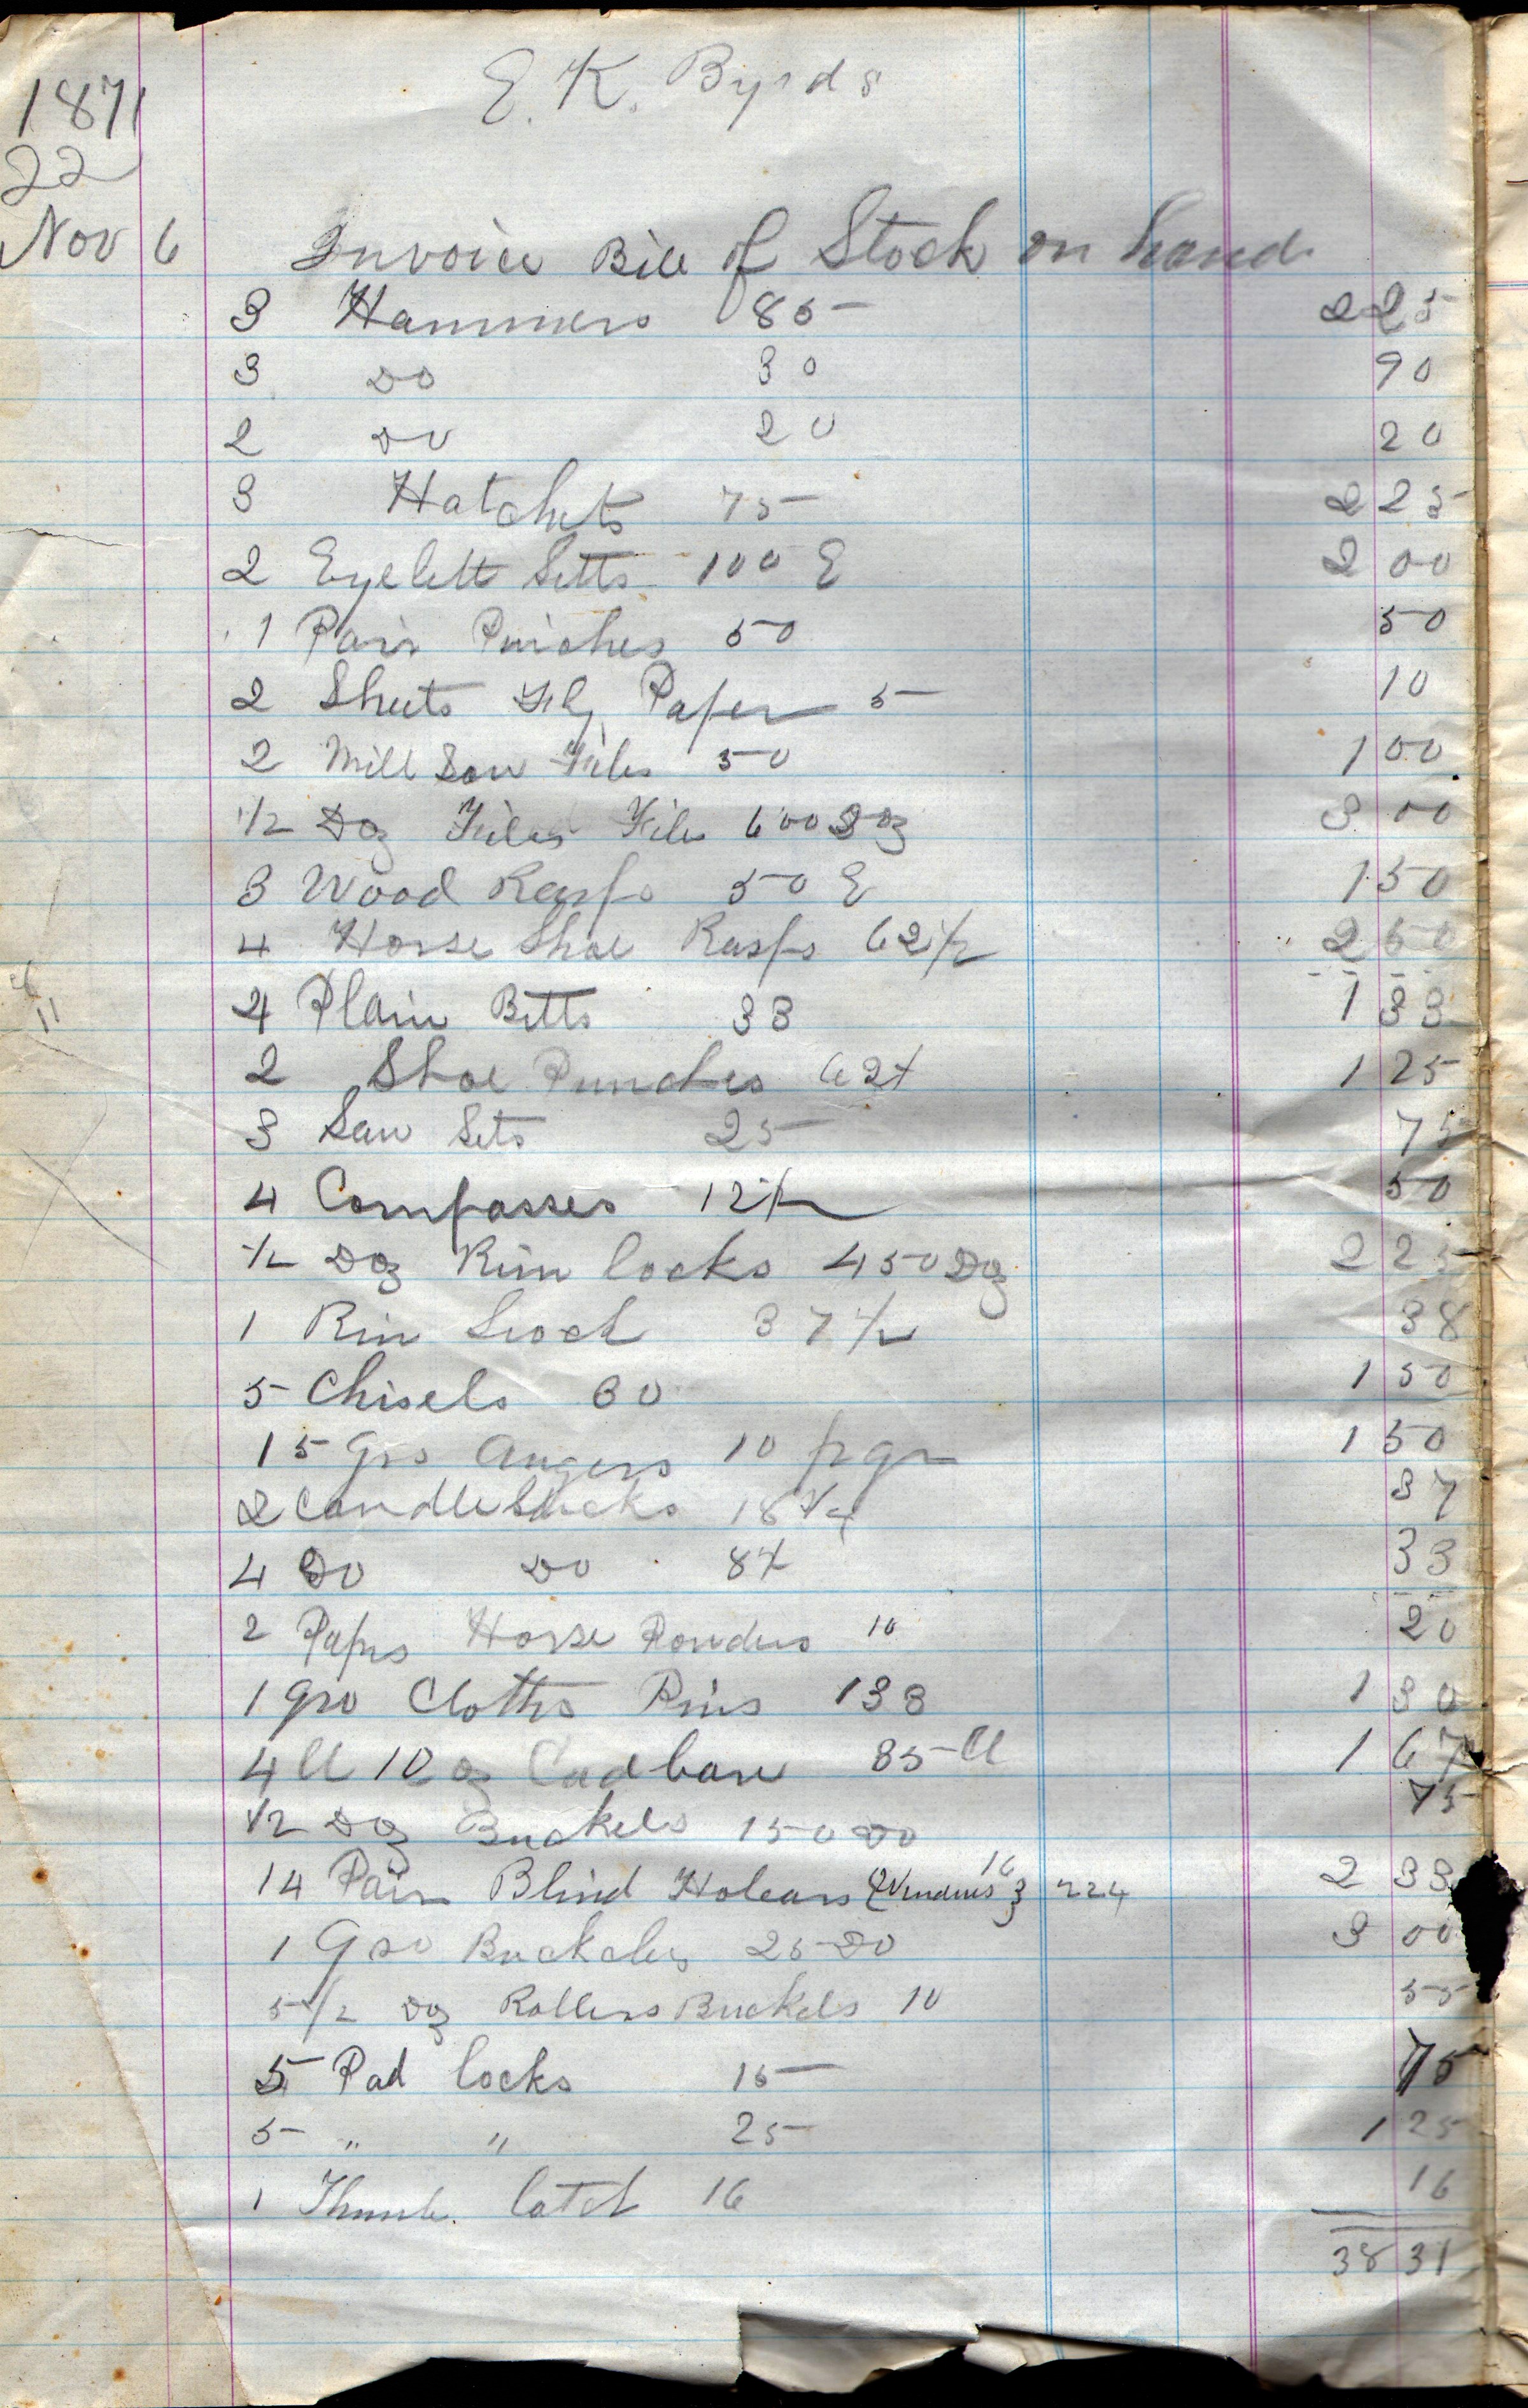 E. K. Byrds
1871
22
Nov 6 Invoice Bill of Stock on hand
3 Hammers 85 2 25
3 Do 30 90
2 Do 20 20
3 Hatchets 75 2 25
2 Eyelett Setts 100 E 2 00
1 Pair Pinches 50 50
2 Sheets Paper 5 10
2 Mill Saw Files 50 1 00
1/2 Doz Files 600 Doz 3 00
3 Wood Rasps 50 E 1 50
4 Horse Shoe Rasps 62 1/2 2 50
4 Plain Bitts 33 1 33
2 Shoe Punches 62 1 25
3 Saw Sets 25 75
4 Compasses 12 1/2 50
1/2 Doz Rim locks 450 Doz 2 25
1 Rim Lock 37 1/2 38
5 Chisels 30 1 50
15 Gro Augers 10 pr gr 1 50
2 Candlesticks 18 3/4 37
4 Do Do 8 33
2 Paprs Horse Powders 10 20
1 gro Cloths Pins 133 1 30
4 ll 12 oz 35 ll 1 67
1/2 Doz Buckels 150 Do 75
14 Pair Blind 16 224 2 33
1 Gro Buckcles 25 Do 3 00
5 1/2 Doz Rollers Buckels 10 55
5 Pad locks 15 75
5 " " 25 1 25
1 Thumb. latch 16 16
38 31